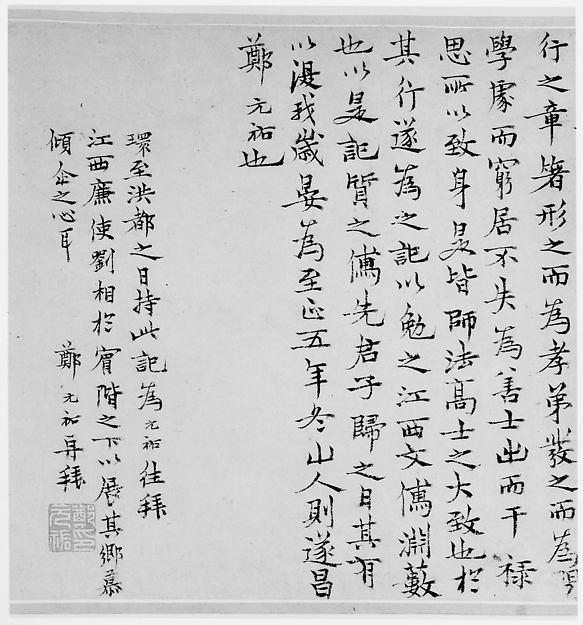 行之章箸形之而為孝弟發之而為
學處而窮居不失為善士出而干祿
思所以致身是皆師法高士之大致也於
其行遂為之記以勉之江西文儒淵藪
也以是記質之儒先君子歸之日其有
以漫我歲晏為至正五年冬山人則遂昌
鄭元祐也
環至洪都之日持此記為元祐往拜
江西廉使劉相於賓階之下以展其鄉慕
傾企之心耳
鄭元祐再拜